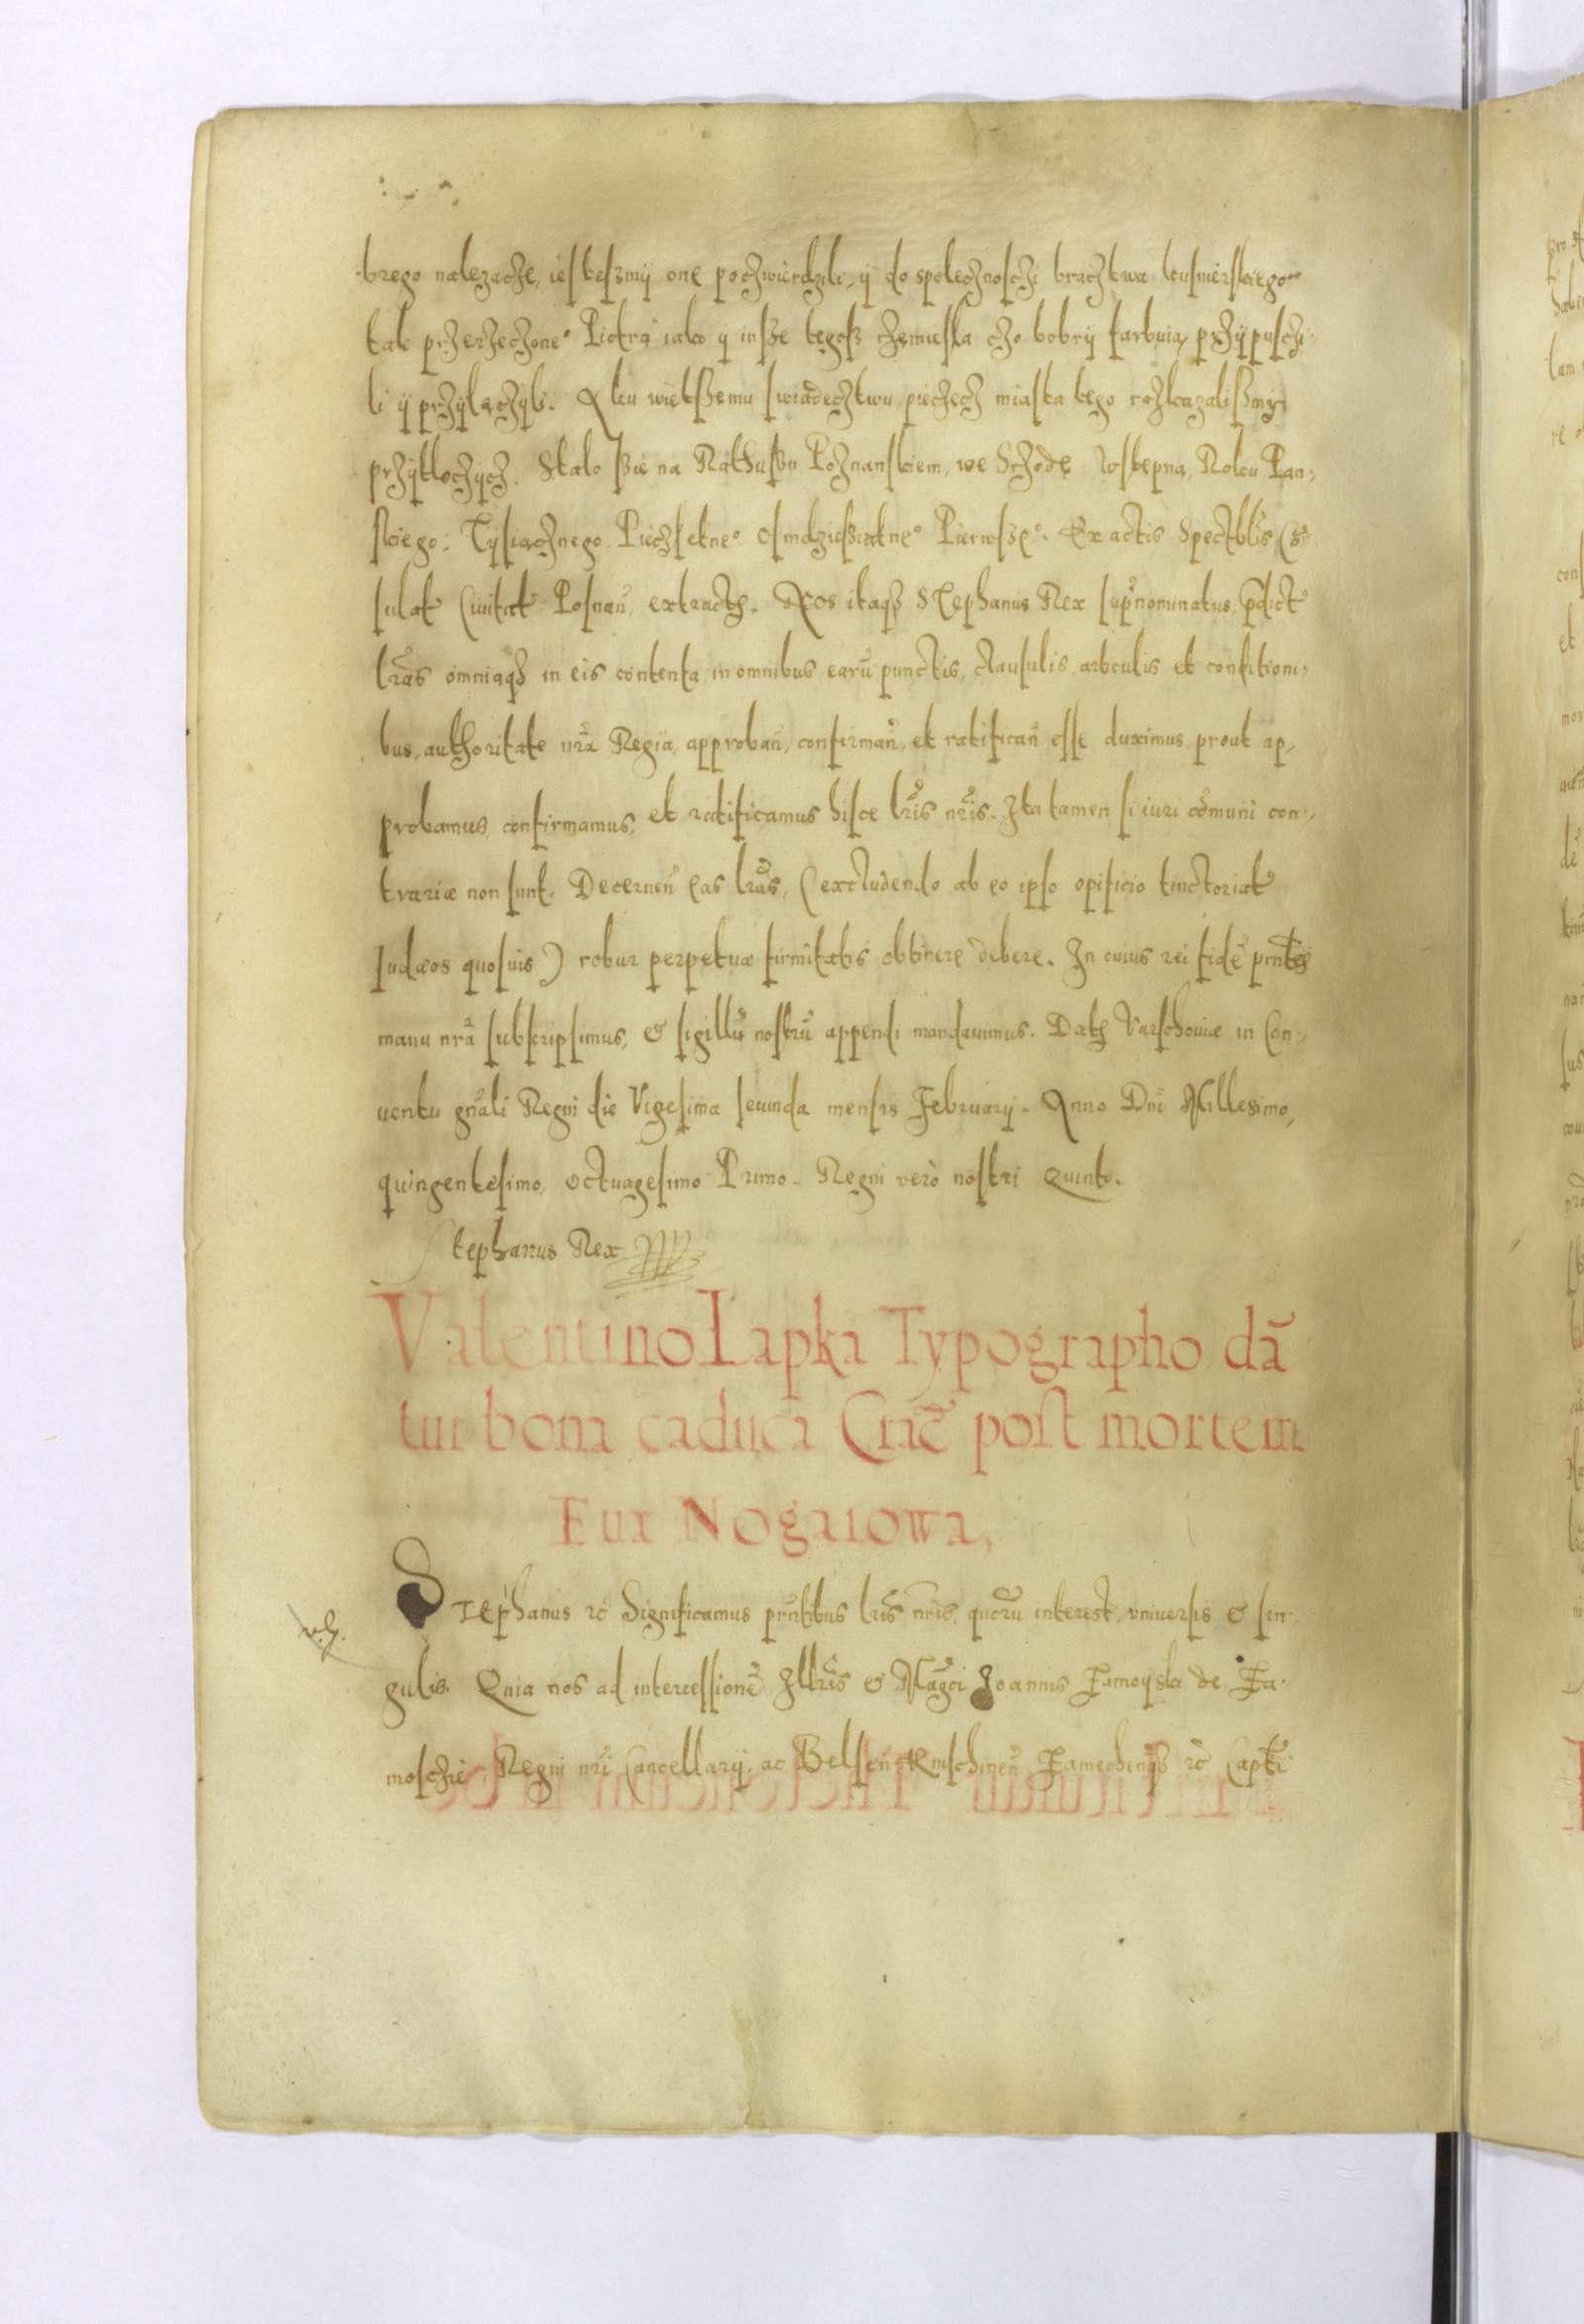 brego nalezacze, iestesmÿ one poczwierdzili, ÿ do społecznosczi bracztwa kusnierskiego
tak przerzeczone° Piotra iako ÿ insze tegosz rzemiesla czo bobrÿ farbuia, przÿpusczi-
li ÿ przÿlaczÿli. A ku wietszemu swiadecztwu, pieczecz miasta tego rozkazalismÿ
przÿtloczÿcz. Stalo szie na Rathuszu Poznanskiem, we Szrode wstepna, Roku Pan-
skiego: Tysiacznego Pieczsetne° Osmdziesziatne° Pierwsze°. Ex actis Spectblis Con-
sulat Ciuitat Posnan̄, extract. Nos itaqз STephanus Rex supnominatus, pdict
lr̃as omniaqз in eis contenta, in omnibus earū punctis, clausulis, articulis et conditioni-
bus, authoritate nr̃a Regia, approban̄, confirman̄, et ratifican̄ esse duximus, prout ap-
probamus, confirmamus, et ratificamus hisce lr̃is nr̃is. Ita tamen si iuri cōmuni con-
trariæ non sunt. Decernen̄ eas lr̃as, (excludendo ab eo ipso opificio tinctoriat
Iudæos quosuis) robur perpetuæ firmitatis obtinere debere. In cuius rei fidē pn̄tes
manu nr̃a subscripsimus, & sigillū nostrū appendi mandauimus. Dat Varschouiæ in Con-
uentu gn̄ali Regni die Vigesima secunda mensis Februarij. Anno Dn̄i Millesimo,
quingentesimo, octuagesimo Primo. Regni verò nostri Quinto.
Stephanus Rex
Valentino Łapka Typographo dā
tur bona caduca Crac̃ post mortem
Euæ Nogaiowa,
STephanus rc̃ Significamus pn̄tibus lr̃is nr̃is, quorū interest, vniuersis & sin-
gulis. Quia nos ad intercessionē Illr̃is & Mag̃ci Ioannis Zamoyski de Za-
moscżie, Regni nr̃i Cancellarij, ac Belsen̄ Knischinen̄ Zamechensis rc̃ Capt̃i